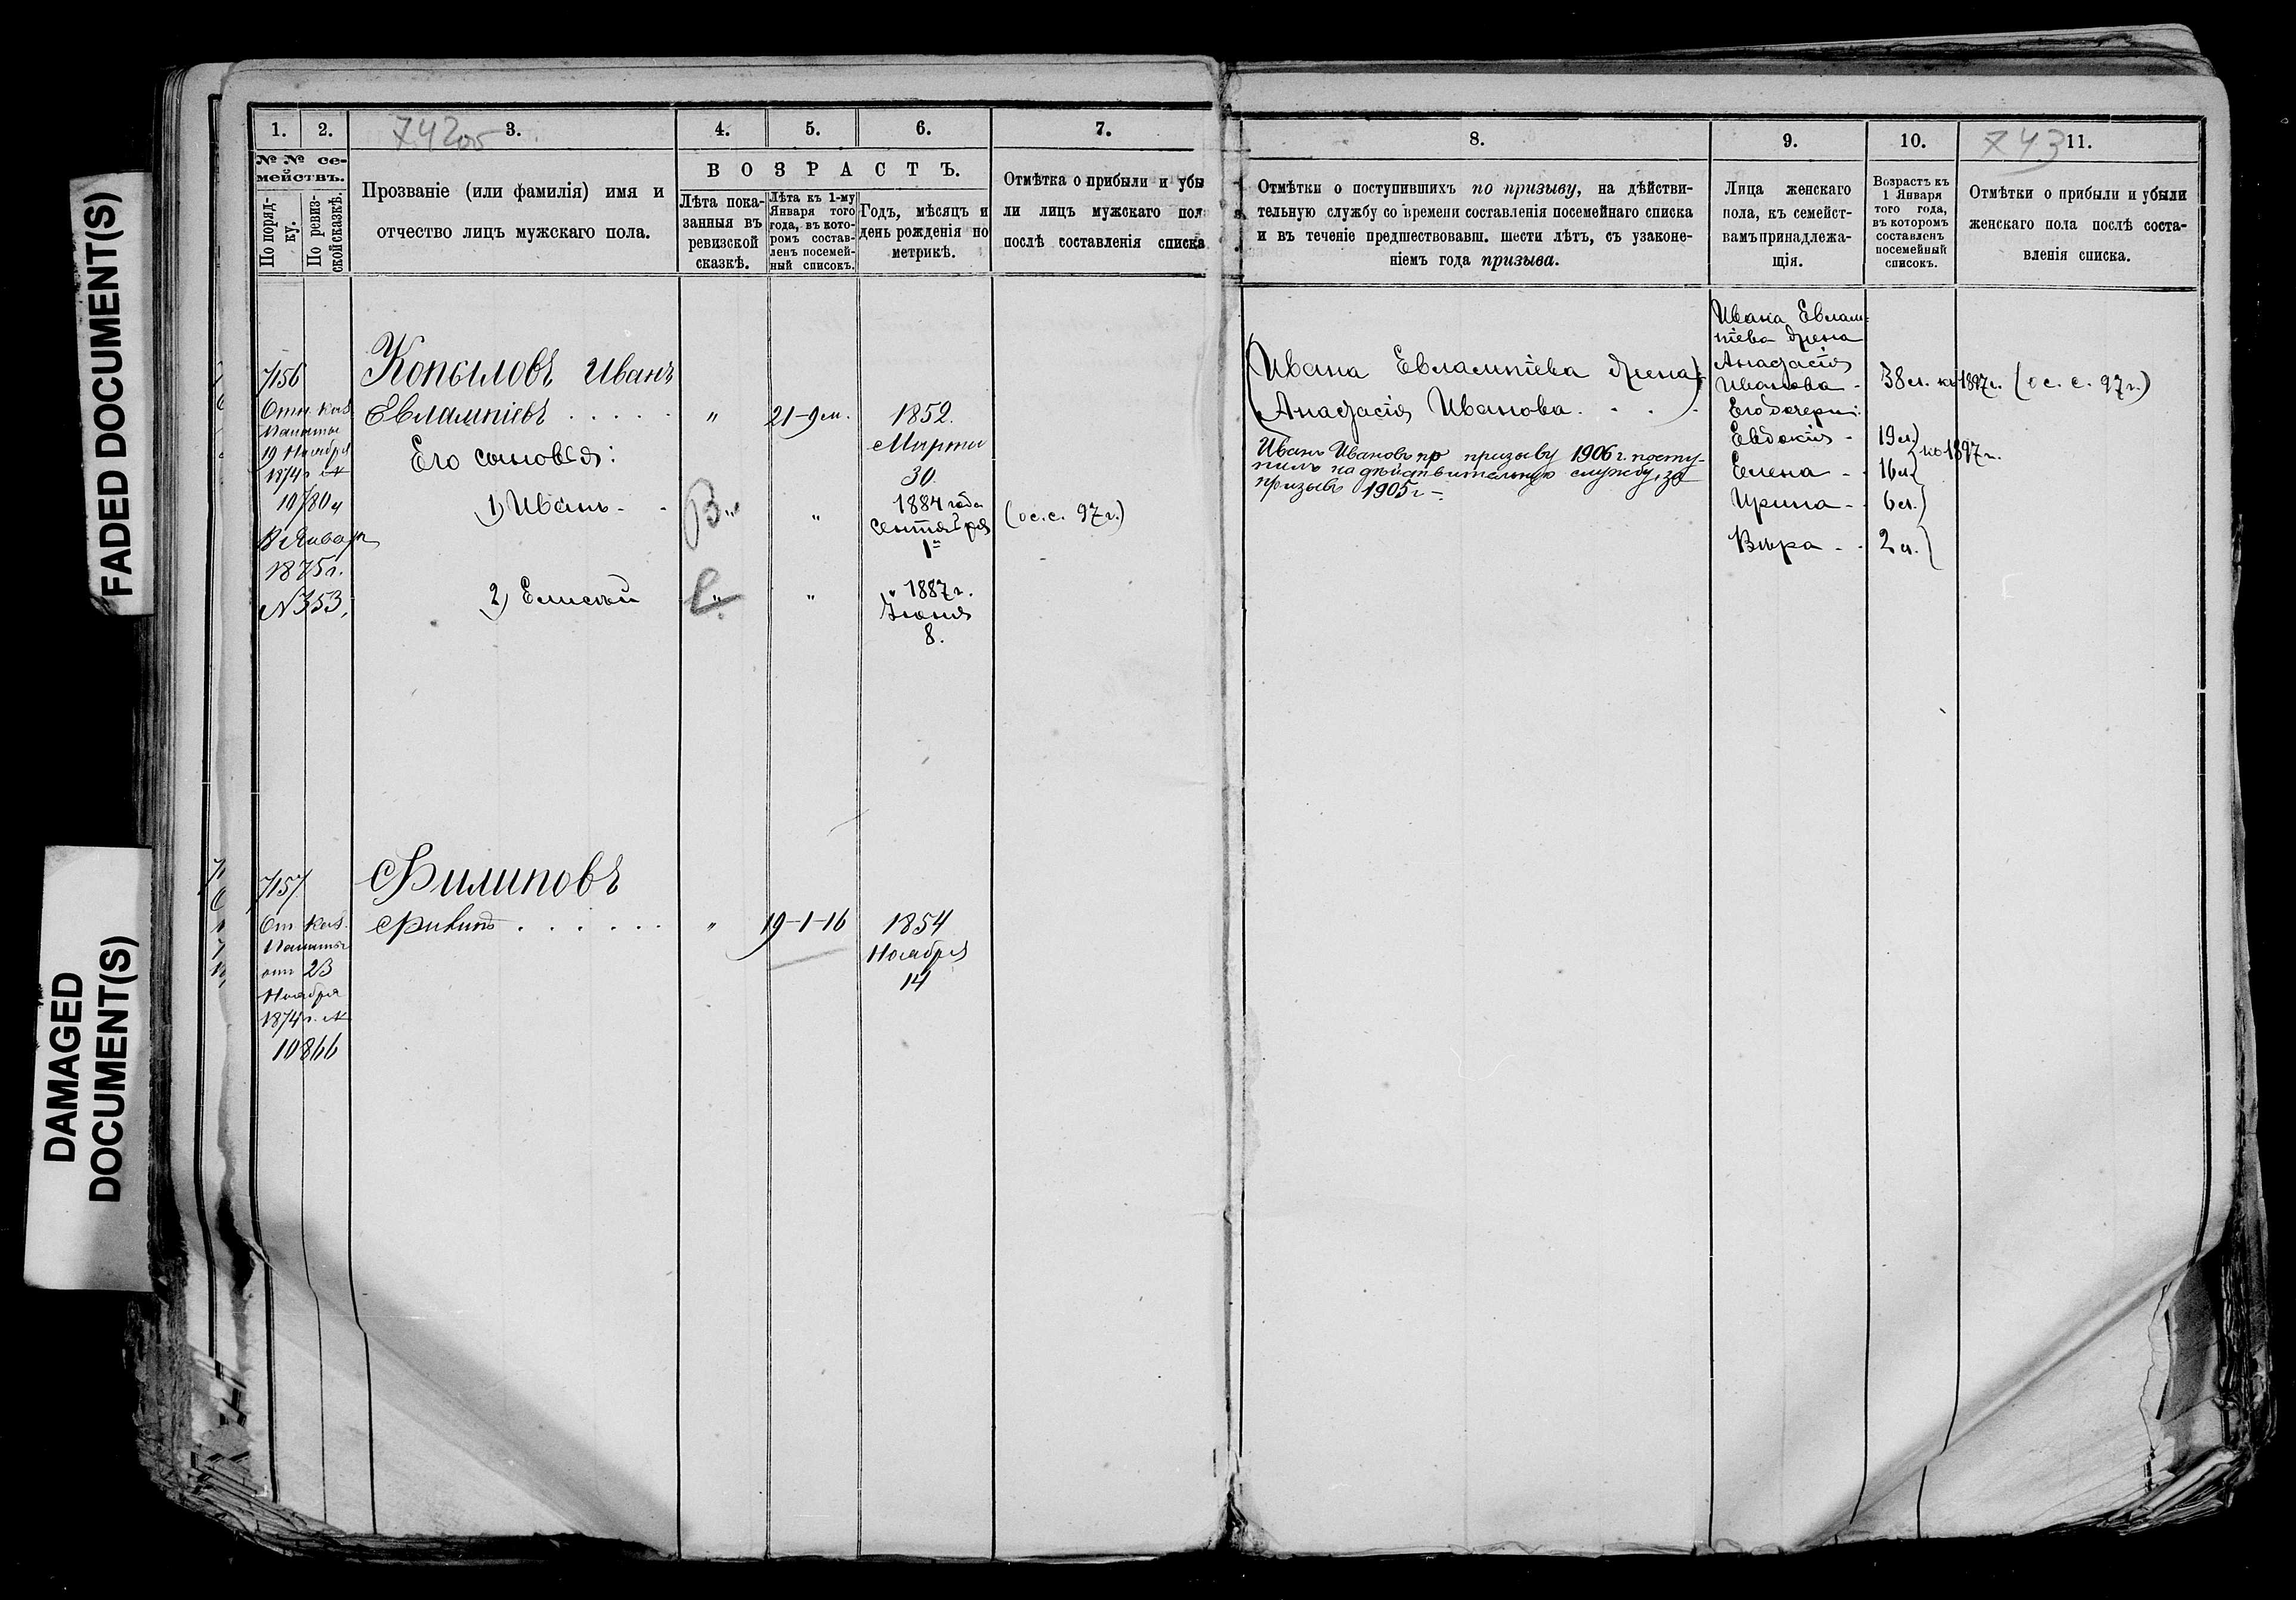 FADED DOCUMENT(S)
DAMAGED
DOCUMENT(S)
1.
2.
3.
4.
5.
6.
7.
742об
№ № се-
мействъ.
По поряд-
ку.
По ревиз-
ской сказкѣ.
Прозваніе (или фамилія) имя и
отчество лицъ мужскаго пола.
ВОЗРАСТЪ.
Лѣта пока-
занныя въ
ревизской
сказкѣ.
Лѣта къ 1-му
Января того
года, въ кото-
ромъ состав-
ленъ посемей-
ный списокъ.
Годъ, мѣсяцъ и
день рожденія по
метрикѣ.
Отмѣтка о прибыли и убы
ли лицъ мужскаго пол
послѣ составленія списка
7156
Копыловъ Иванъ
Евлампіевъ . . . . .
" 21-9 м. 1852.
Марта
30.
Отн. каз.
Палаты
19 Ноября
1874 г. №
10780 и
13 Января
1875 г.
№ 353.
Его сыновья:
1) Иванъ - -
В " "
1884 года
Сентября
1го
(ос. с. 97 г.)
2) Елисѣй
" "
" 1887 г.
Іюня
8.
7157
Филиповъ
Филипъ . . . . . .
" 19-1-16 1854
Ноября
14
От. Каз.
Палаты
отъ 23
Ноября
1874 г. №
10866
8.
9.
10.
743
11.
Отмѣтки о поступившихъ по призыву, на дѣйстви-
тельную службу со времени составленія посемейнаго списка
и въ теченіе предшествовавш. шести лѣтъ, съ узаконе-
ніемъ года призыва.
Лица женскаго
пола, къ семейст-
вамъ принадлежа-
щія.
Возрастъ къ
1 Января
того года,
въ которомъ
составленъ
посемейный
списокъ.
Отмѣтки о прибыли и убыли
женскаго пола послѣ соста-
вленія списка.
(Ивана Евлампіева жена)
(Анастасія Иванова. . .)
Иванъ Ивановъ по призыву 1906 г. посту-
пилъ на дѣйствительную службу, за
призывъ 1905 г. -
Ивана Евлам-
піева жена
Анастасія
Иванова -
38 л. къ 1897 г. (ос. с. 97 г.)
Его дочери:
Евдокія - 19 л.
Елена - 16 л.
къ 1897 г.
Ирина - 6 л.
Вѣра - - 2 л.